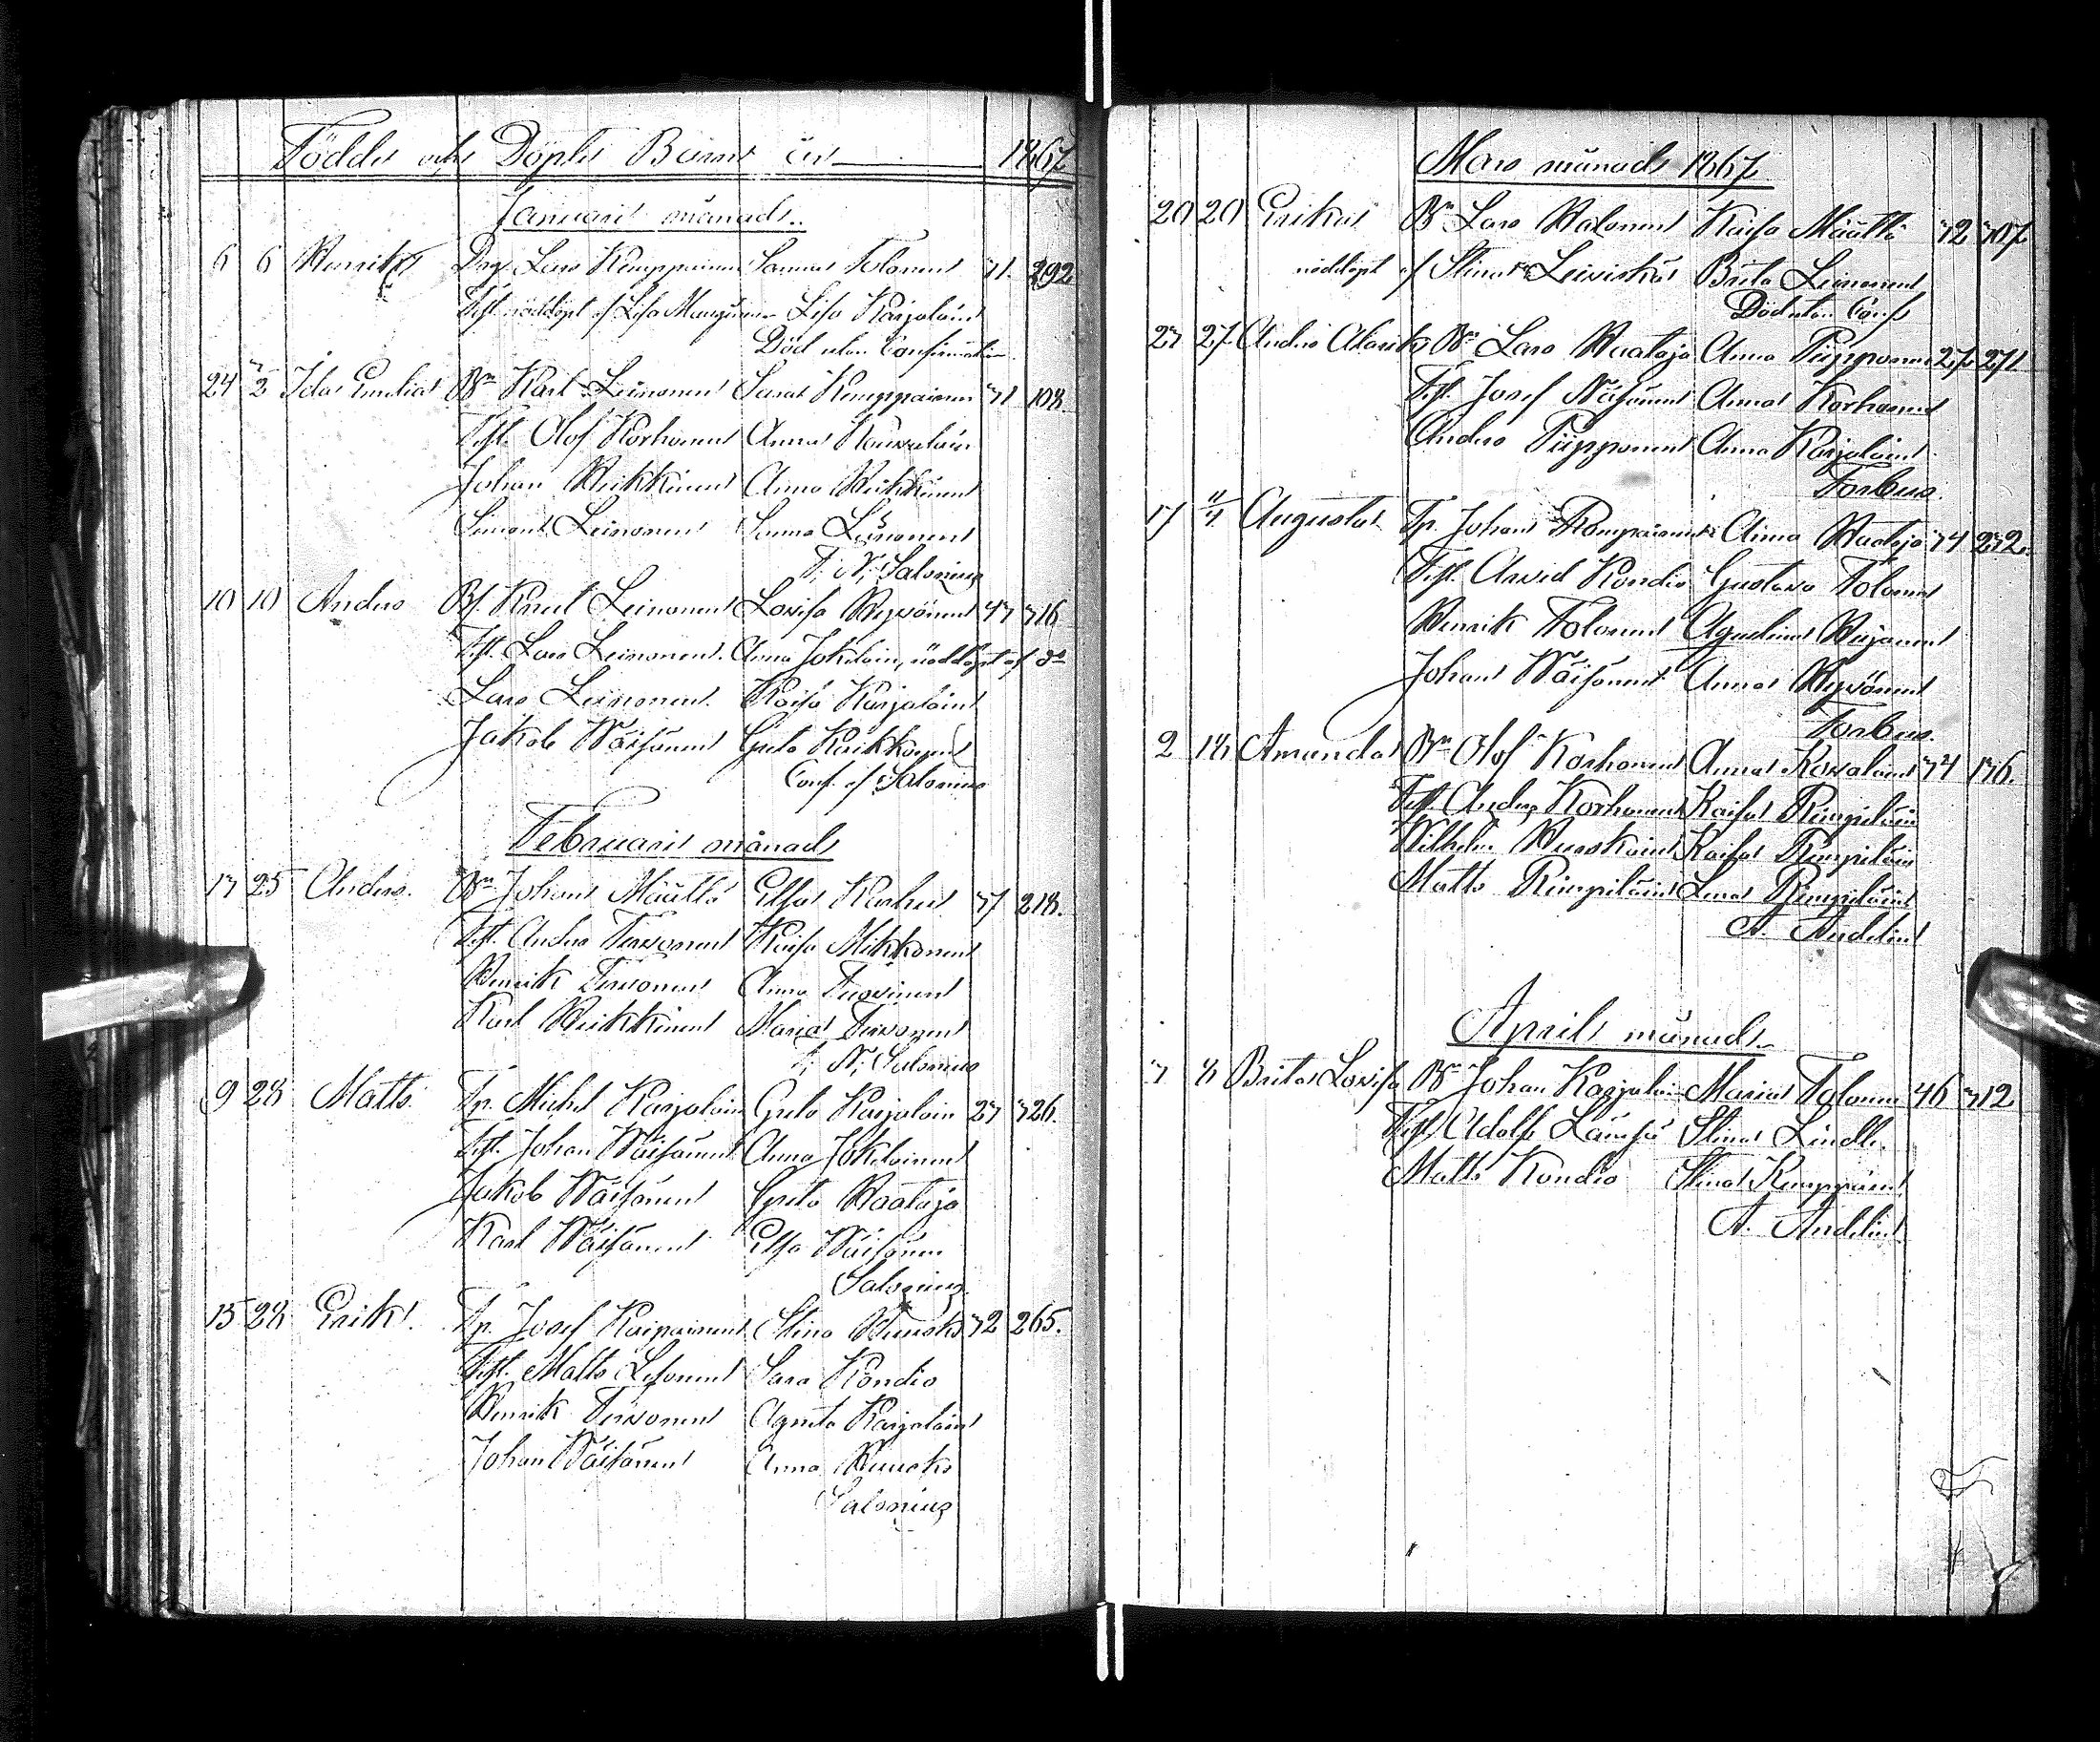 Födde och Döpte Barn år 1867
Januarii månad.
6 6 Henrik Drg. Lars Kemppainen Sanna Tolonen 31. 292
Test. nöddöpt af Lisa Lisa Karjalain
Död utan Confirmation
24 3/2 Ida Emilia Bn Karl Leinonen Sara Kemppainen 31 108.
Test. Olof Korhonen Anna Kowalain
Johan Heikkinen Anna Heikkinen
Simon Leinonen Leinonen
F. N. Salonius
10 10 Anders Karl Leinonen Lovisa Hyvönen 43 316
Test. Lars Leinonen. Anna Jokelain, nöddöpt af do
Lars Leinonen. Kaisa Karjalain
Jakob Wäisänen Greta Keikkonen
Conf. af Salonius
Februarii månad
13 25 Anders. Bn Johan Määttä Elsa Karhu 37 218.
Test. Anders Tervonen Kaisa Mikkonen
Henrik Tervonen Anna Tuovinen
Karl Heikkinen Maria Tervonen
F. N. Salonius
9 28 Matts. Tp. Michel Karjalain Greta Karjalain 23 326.
Test. Johan Wäisänen Anna Jokelainen
Jakob Wäisänen Greta Raataja
Karl Wäisänen Elsa Wäisänen
Salonius
15 28 Erik. Tp. Josef Kaipainen Stina Huusko 32 265.
Test. Matts Lesonen Sara Kondio
Henrik Tervonen Agneta Karjalain
Johan Wäisänen Anna Huusko
Salonius
Mars månad 1867.
20 20 Erika Bn Lars Halonen Kaisa Määttä 32 307
nöddöpt af Stina Leiviskä Brita Leinonen
Död utan Conf.
23 27. Anders Alarik Bn Lars Raataja Anna Piipponen 27 271
Test. Josef Wäisänen Anna Korhonen
Anders Piipponen Anna Karjalain
Forbus.
17 11/4 Augusta Tp. Johan Anna Raataja 34 232.
Test. Arvid Kondio Gustava Tolonen
Henrik Tolonen
Johan Wäisänen Anna Hyvönen
Forbus.
2 18 Amanda Bn Olof Korhonen Anna Kowalain 34 136.
Test. Anders Korhonen Kaisa Rimpiläin
Wilhelm Kaisa Rimpiläin
Matts Rimpiläin Lena Rimpiläin
A. Andelin
April månad.
3 8 Brita Lovisa Bn Johan Karjalain Maria Tolonen 46 312
Test. Adolf Lämsä Stina Lindh.
Matts Kondio Stina Kemppain
A. Andelin